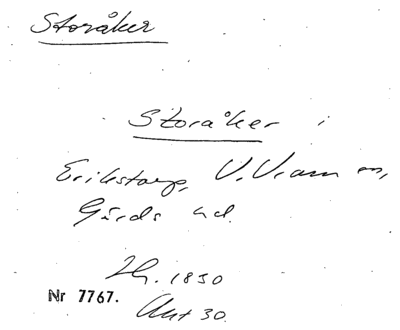 Storåker
Storåker i
Erikstorp, V. Vram sn,
Gärds hd.
Lh. 1830
Nr 7767.
Akt 30.